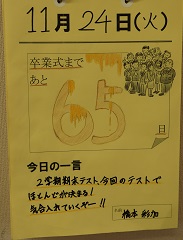 11月24日(火)
卒業式まで
あと
65
日
今日の一言
2学期期末テスト、今回のテストで
ほとんど決まる!
気合入れていくぞー!!